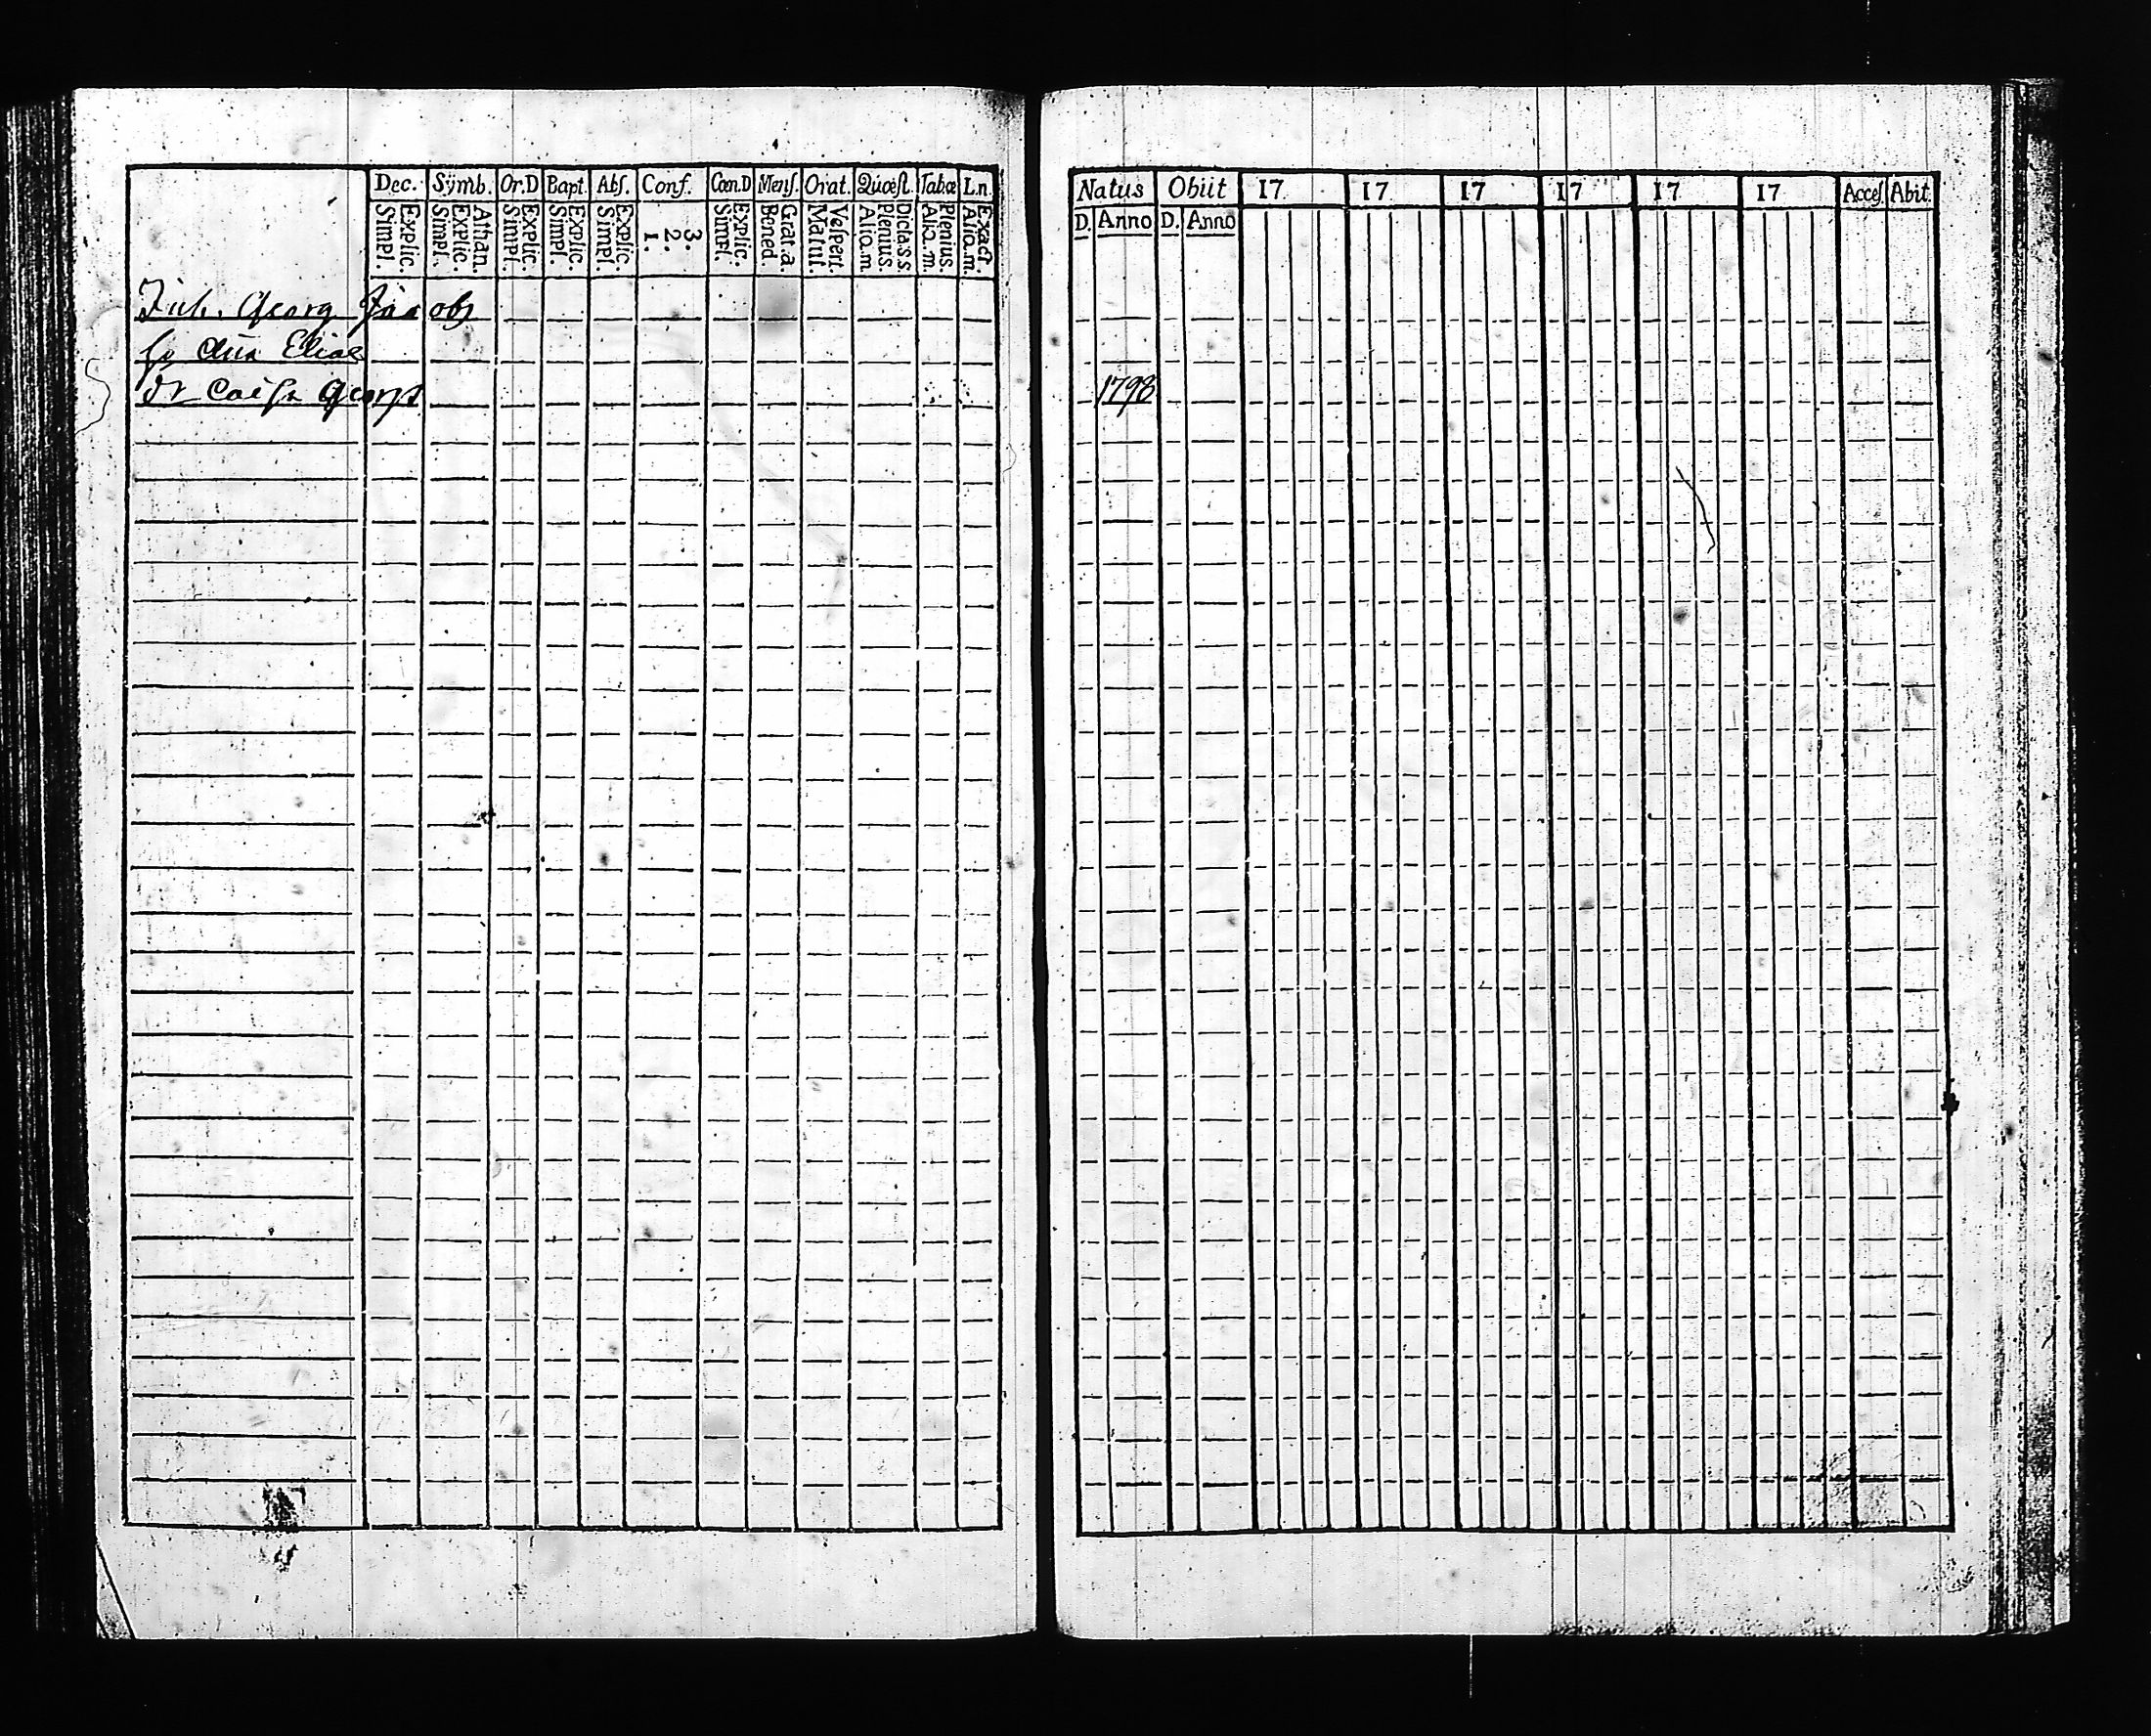 Dec. Symb. Or.D Bapt. Abs. Conf. Cœn.D Mens. Orat. Quœst. Tabœ L.n.
Explic. Simpl. Athan. Explic. Simpl. Explic. Simpl. Explic. Simpl. Explic. Simpl. 3. 2. 1. Explic. Simpl. Grat.a. Bened. Vespert. Matut. Dicta.s.s. Plenius. Alio.m. Plenius. Alio.m. Exact. Alio.m.
Georg Jacobs
Elias
Caisa Georgs
Natus Obiit 17 17 17 17 17 17 Acces. Abit.
D. Anno D. Anno
1798